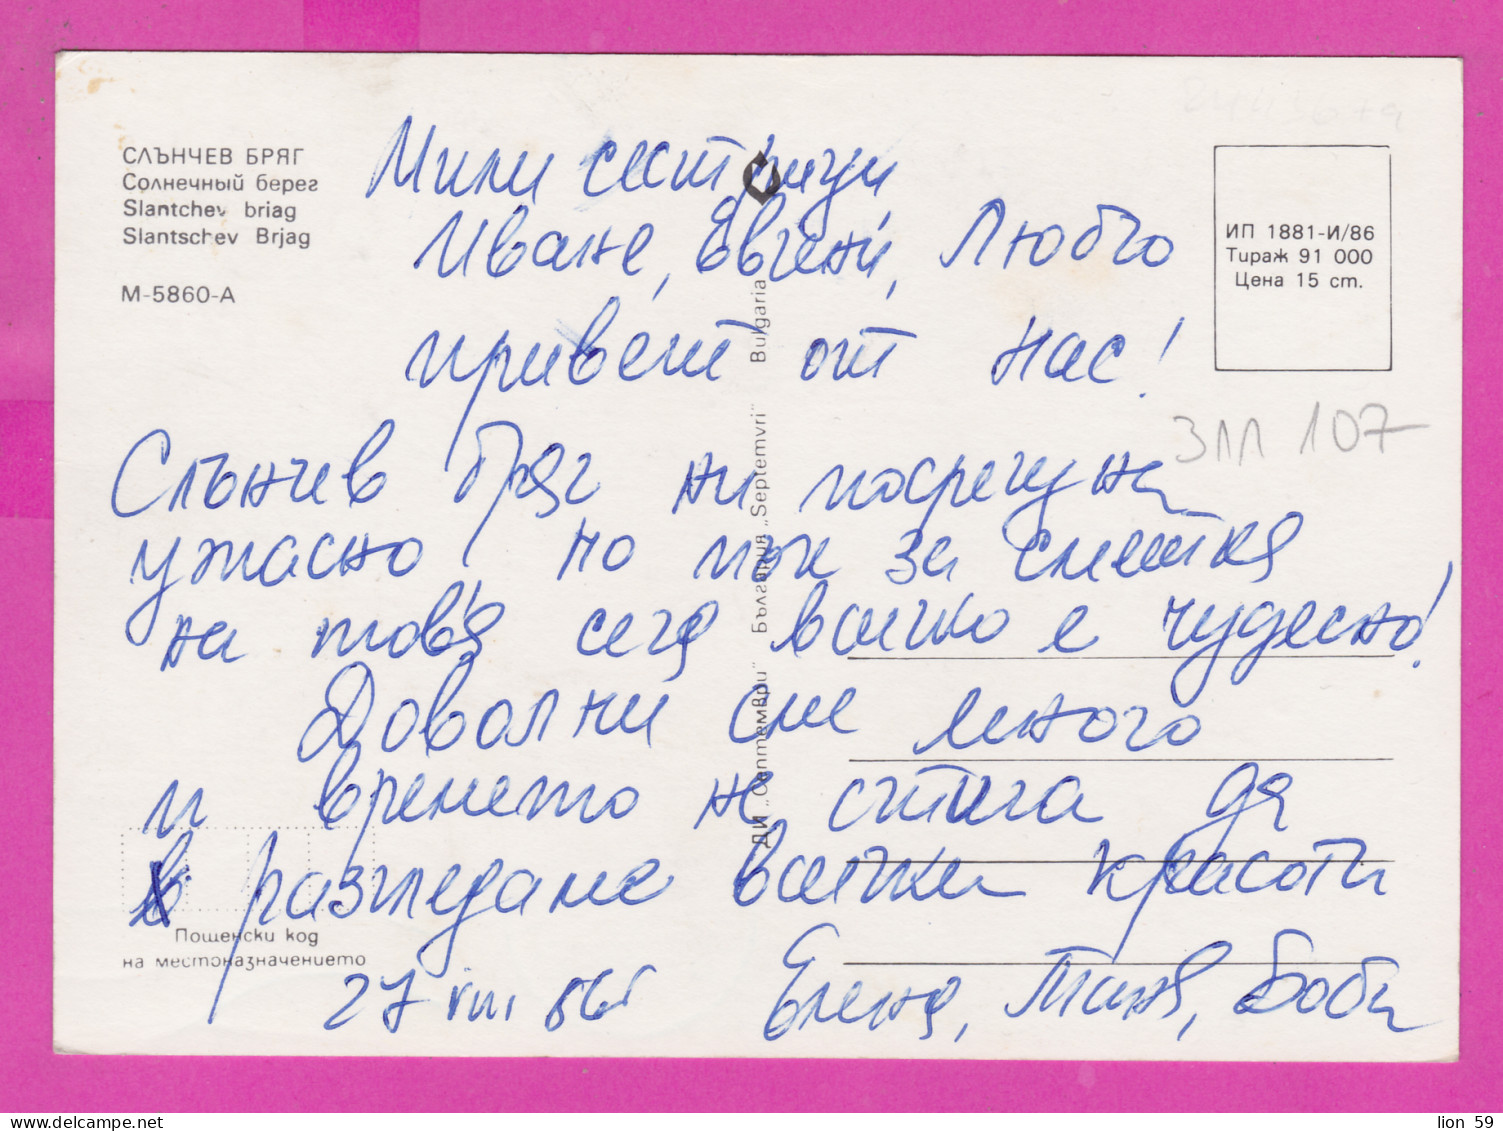 СЛЪНЧЕВ БРЯГ
Солнечный берег
Slantchev briag
Slantschev Brjag
М-5860-А
Мили сестрици
Иване, Евгени, Любчо
привет от нас!
ИП 1881-И/86
Тираж 91 000
Цена 15 ст.
ЗЛЛ 107
Слънчев бряг ни посрещна
ужасно! но пък за сметка
на това сега всичко е чудесно!
Доволни сме много
и времето не стига да
разгледаме всички красоти
Пощенски код
на местоназначението
27 VIII 86г
Елена, Таня, Боби
ДИ „Септември" България „Septemvri" Bulgaria
lion 59